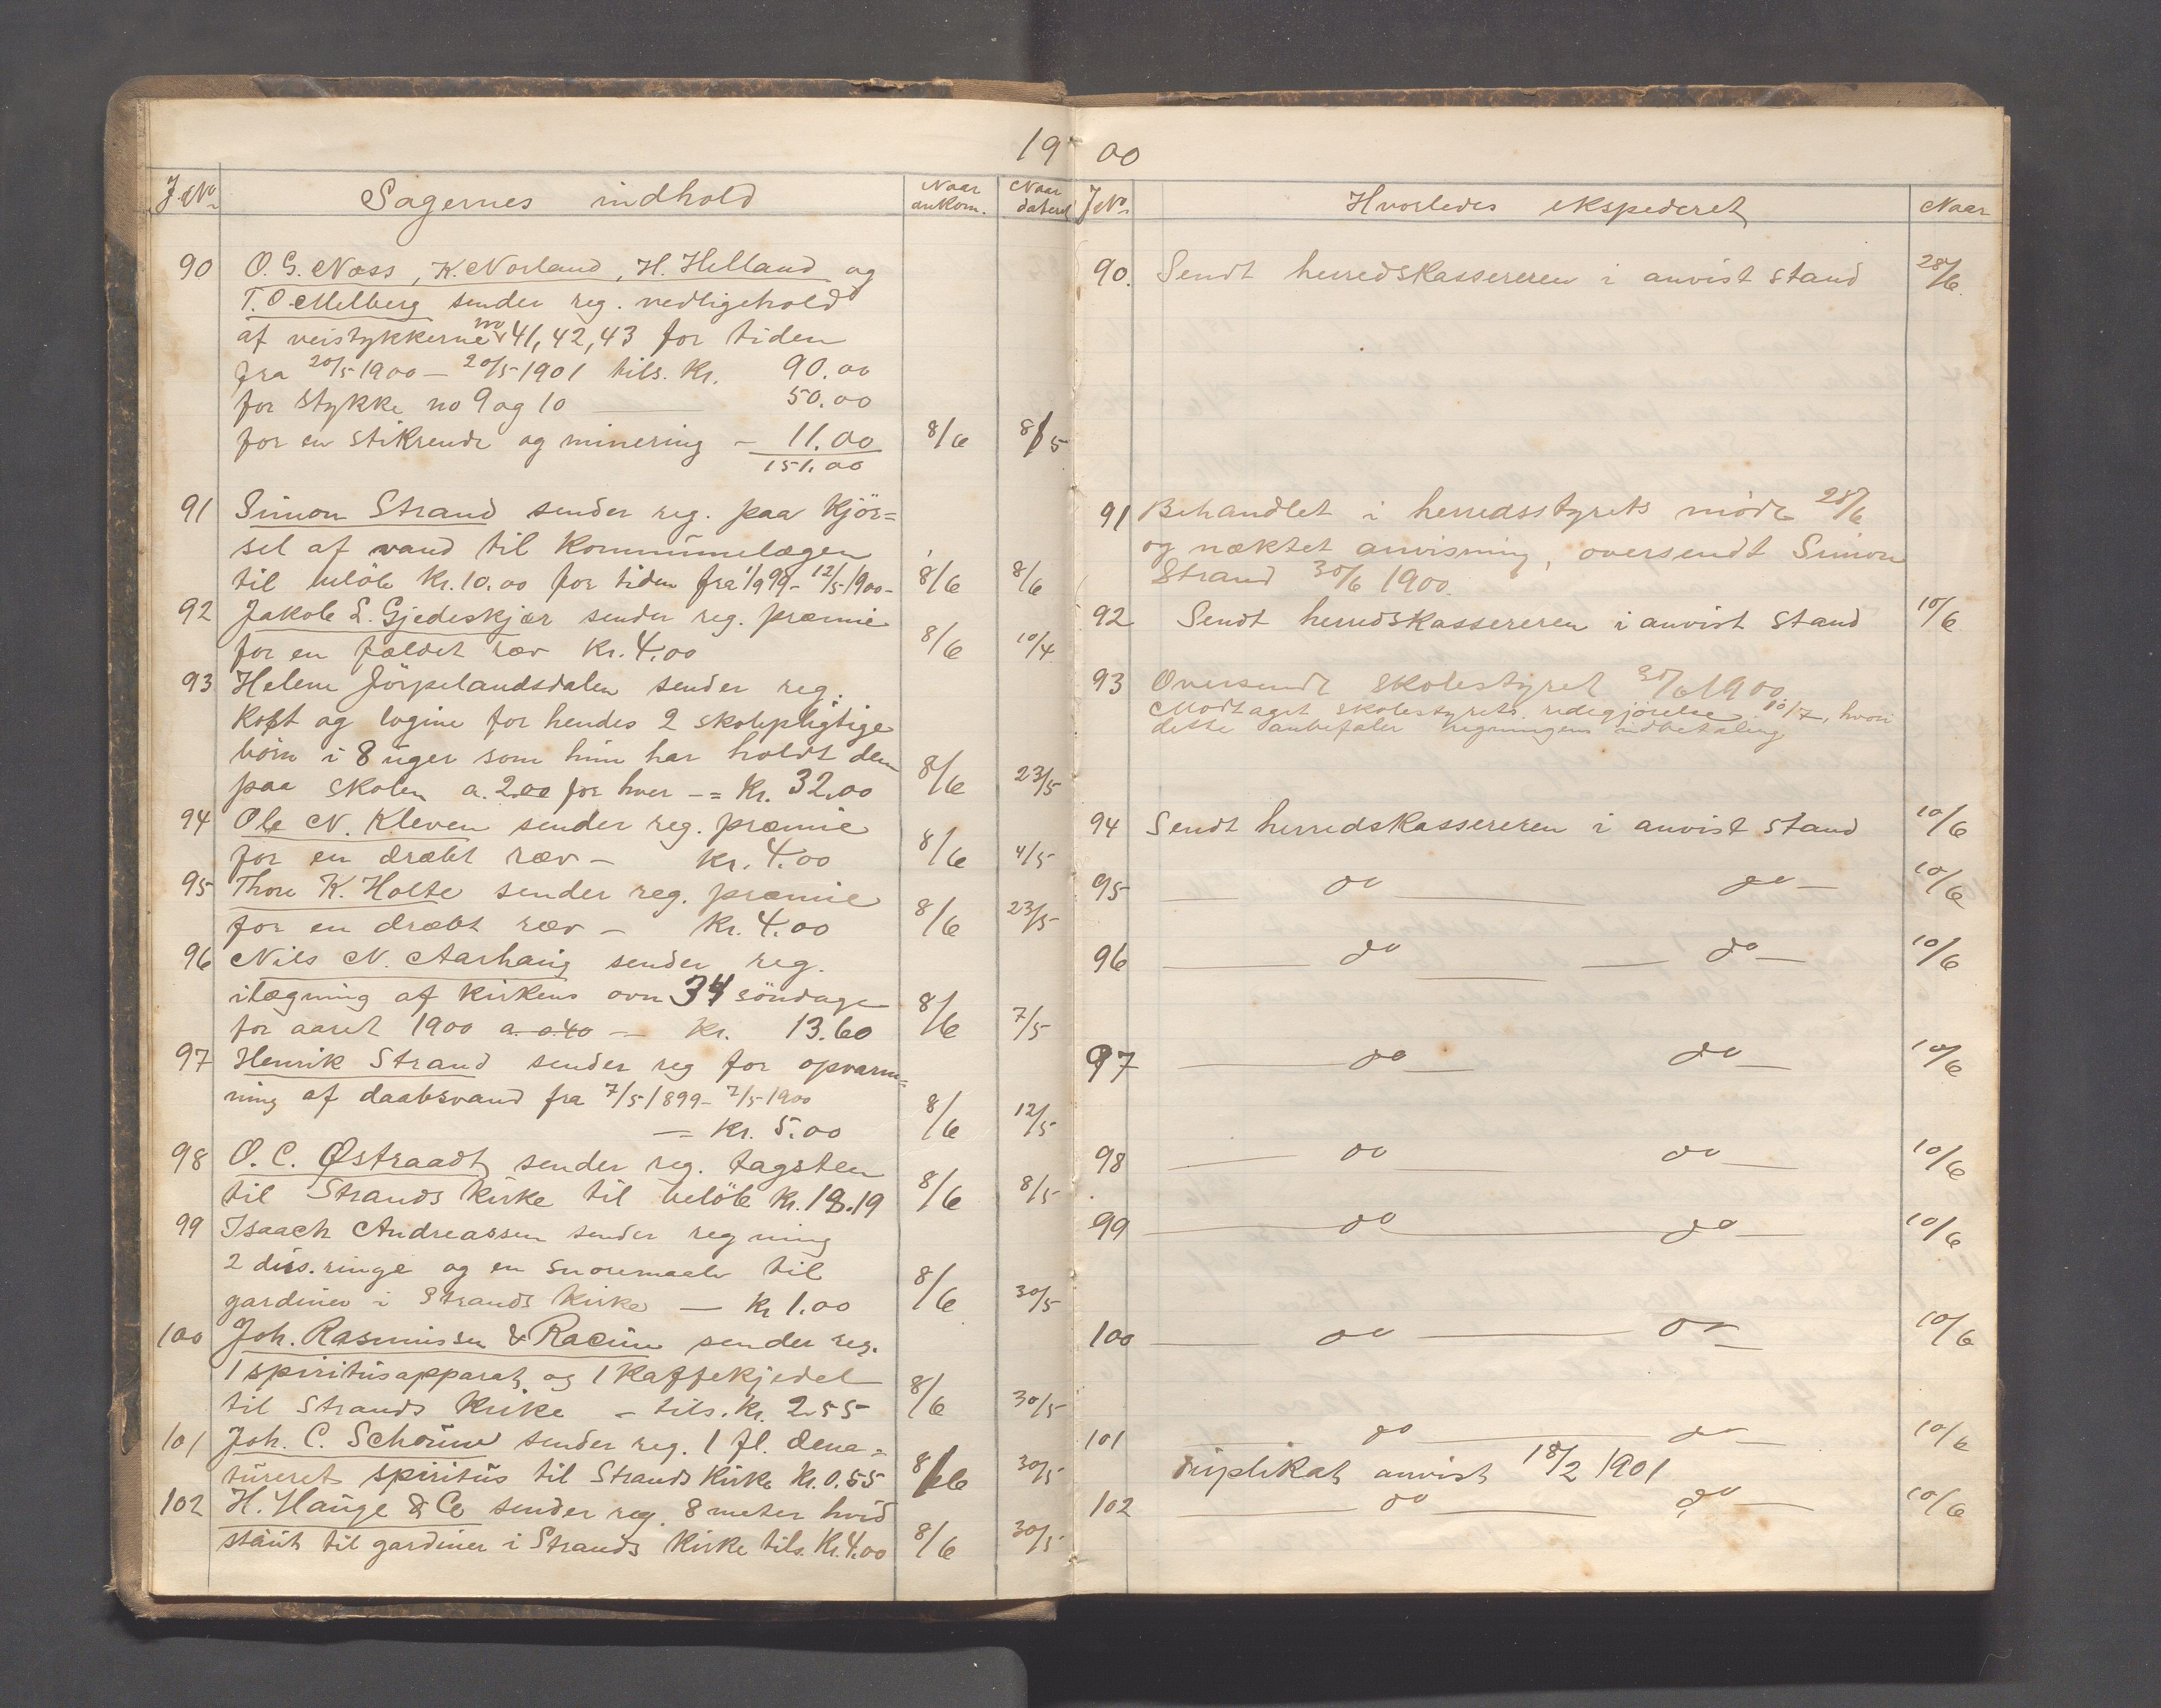 1900
J.No. Sagernes indhold Naar ankom. Naar dateret
90 O. G. Næss, K. Norland, H. Helland og
T. O. Melberg sender reg. vedligehold
af veistykkerne no 41, 42, 43 for tiden
fra 20/5 1900 – 20/5 1901 tils. Kr. 90.00
for stykke no 9 og 10 — 50.00
for en stikrende og minering – 11.00 8/6 8/5
151.00
91 Simon Strand sender reg. paa kjör=
sel af vand til Kommunelægen
til belöb Kr. 10.00 for tiden fra 1/9 99 – 12/5 1900 – 8/6 8/6
92 Jakob L. Gjedeskjær sender reg. præmie
for en fældet ræv Kr. 4.00 8/6 10/4
93 Helene Jörpelandsdalen sender reg.
Kost og logine for hendes 2 skolepligtige
börn i 8 uger som hun har holdt dem
paa skolen a. 2.00 for hver – = Kr. 32.00 8/6 23/5
94 Ole N. Kleven sender reg. præmie
for en dræbt ræv – Kr. 4.00 8/6 4/5
95 Thore K. Holte sender reg. præmie
for en dræbt ræv – Kr. 4.00 8/6 23/5
96 Nils N. Aarhaug sender reg.
ilægning af kirkens ovn 34 söndage
for aaret 1900 a 0.40 – Kr. 13.60 8/6 7/5
97 Henrik Strand sender reg for opvarm=
ning af daabsvand fra 7/5 1899 – 7/5 1900
– = Kr. 5.00 8/6 12/5
98 O. C. Østraadt sender reg. tagsten
til Strands Kirke til belöb Kr. 18.19 8/6 8/5
99 Isaach Andreassen sender regning
2 dus. ringe og en til
gardiner i Strands Kirke — Kr 1.00 8/6 30/5
100 Joh. Rasmussen & Racine sender reg.
1 spiritusapparat og 1 Kaffekjedel
til Strands Kirke – tils. Kr. 2.55 8/6 30/5
101 Joh. C. sender reg. 1 fl. dena=
tureret spiritus til Strands Kirke Kr. 0.55 8/6 30/5
102 H. Hauge & Co sender reg. 8 meter hvid
til gardiner i Strands Kirke tils. Kr. 4.00 8/6 30/5
J No. Hvorledes ekspederet Naar
90. Sendt herredskassereren i anvist stand 28/6.
91 Behandlet i herredsstyrets möde 28/6
og nægtet anvisning, oversendt Simon
Strand 30/6 1900.
92 Sendt herredskassereren i anvist stand 10/6
93 Oversendt skolestyret 30/6 1900.
Modtaget skolestyrets redegjörelse 10/7, hvori
dette anbefaler regningens udbetaling
94 Sendt herredskassereren i anvist stand 10/6
95 — do — do — 10/6
96 — do — do — 10/6
97 — do — do — 10/6
98 — do — do — 10/6
99 — do — do — 10/6
100 — do — do — 10/6
101 — do — do — 10/6
duplikat anvist 18/2 1901
102 — do — do — 10/6